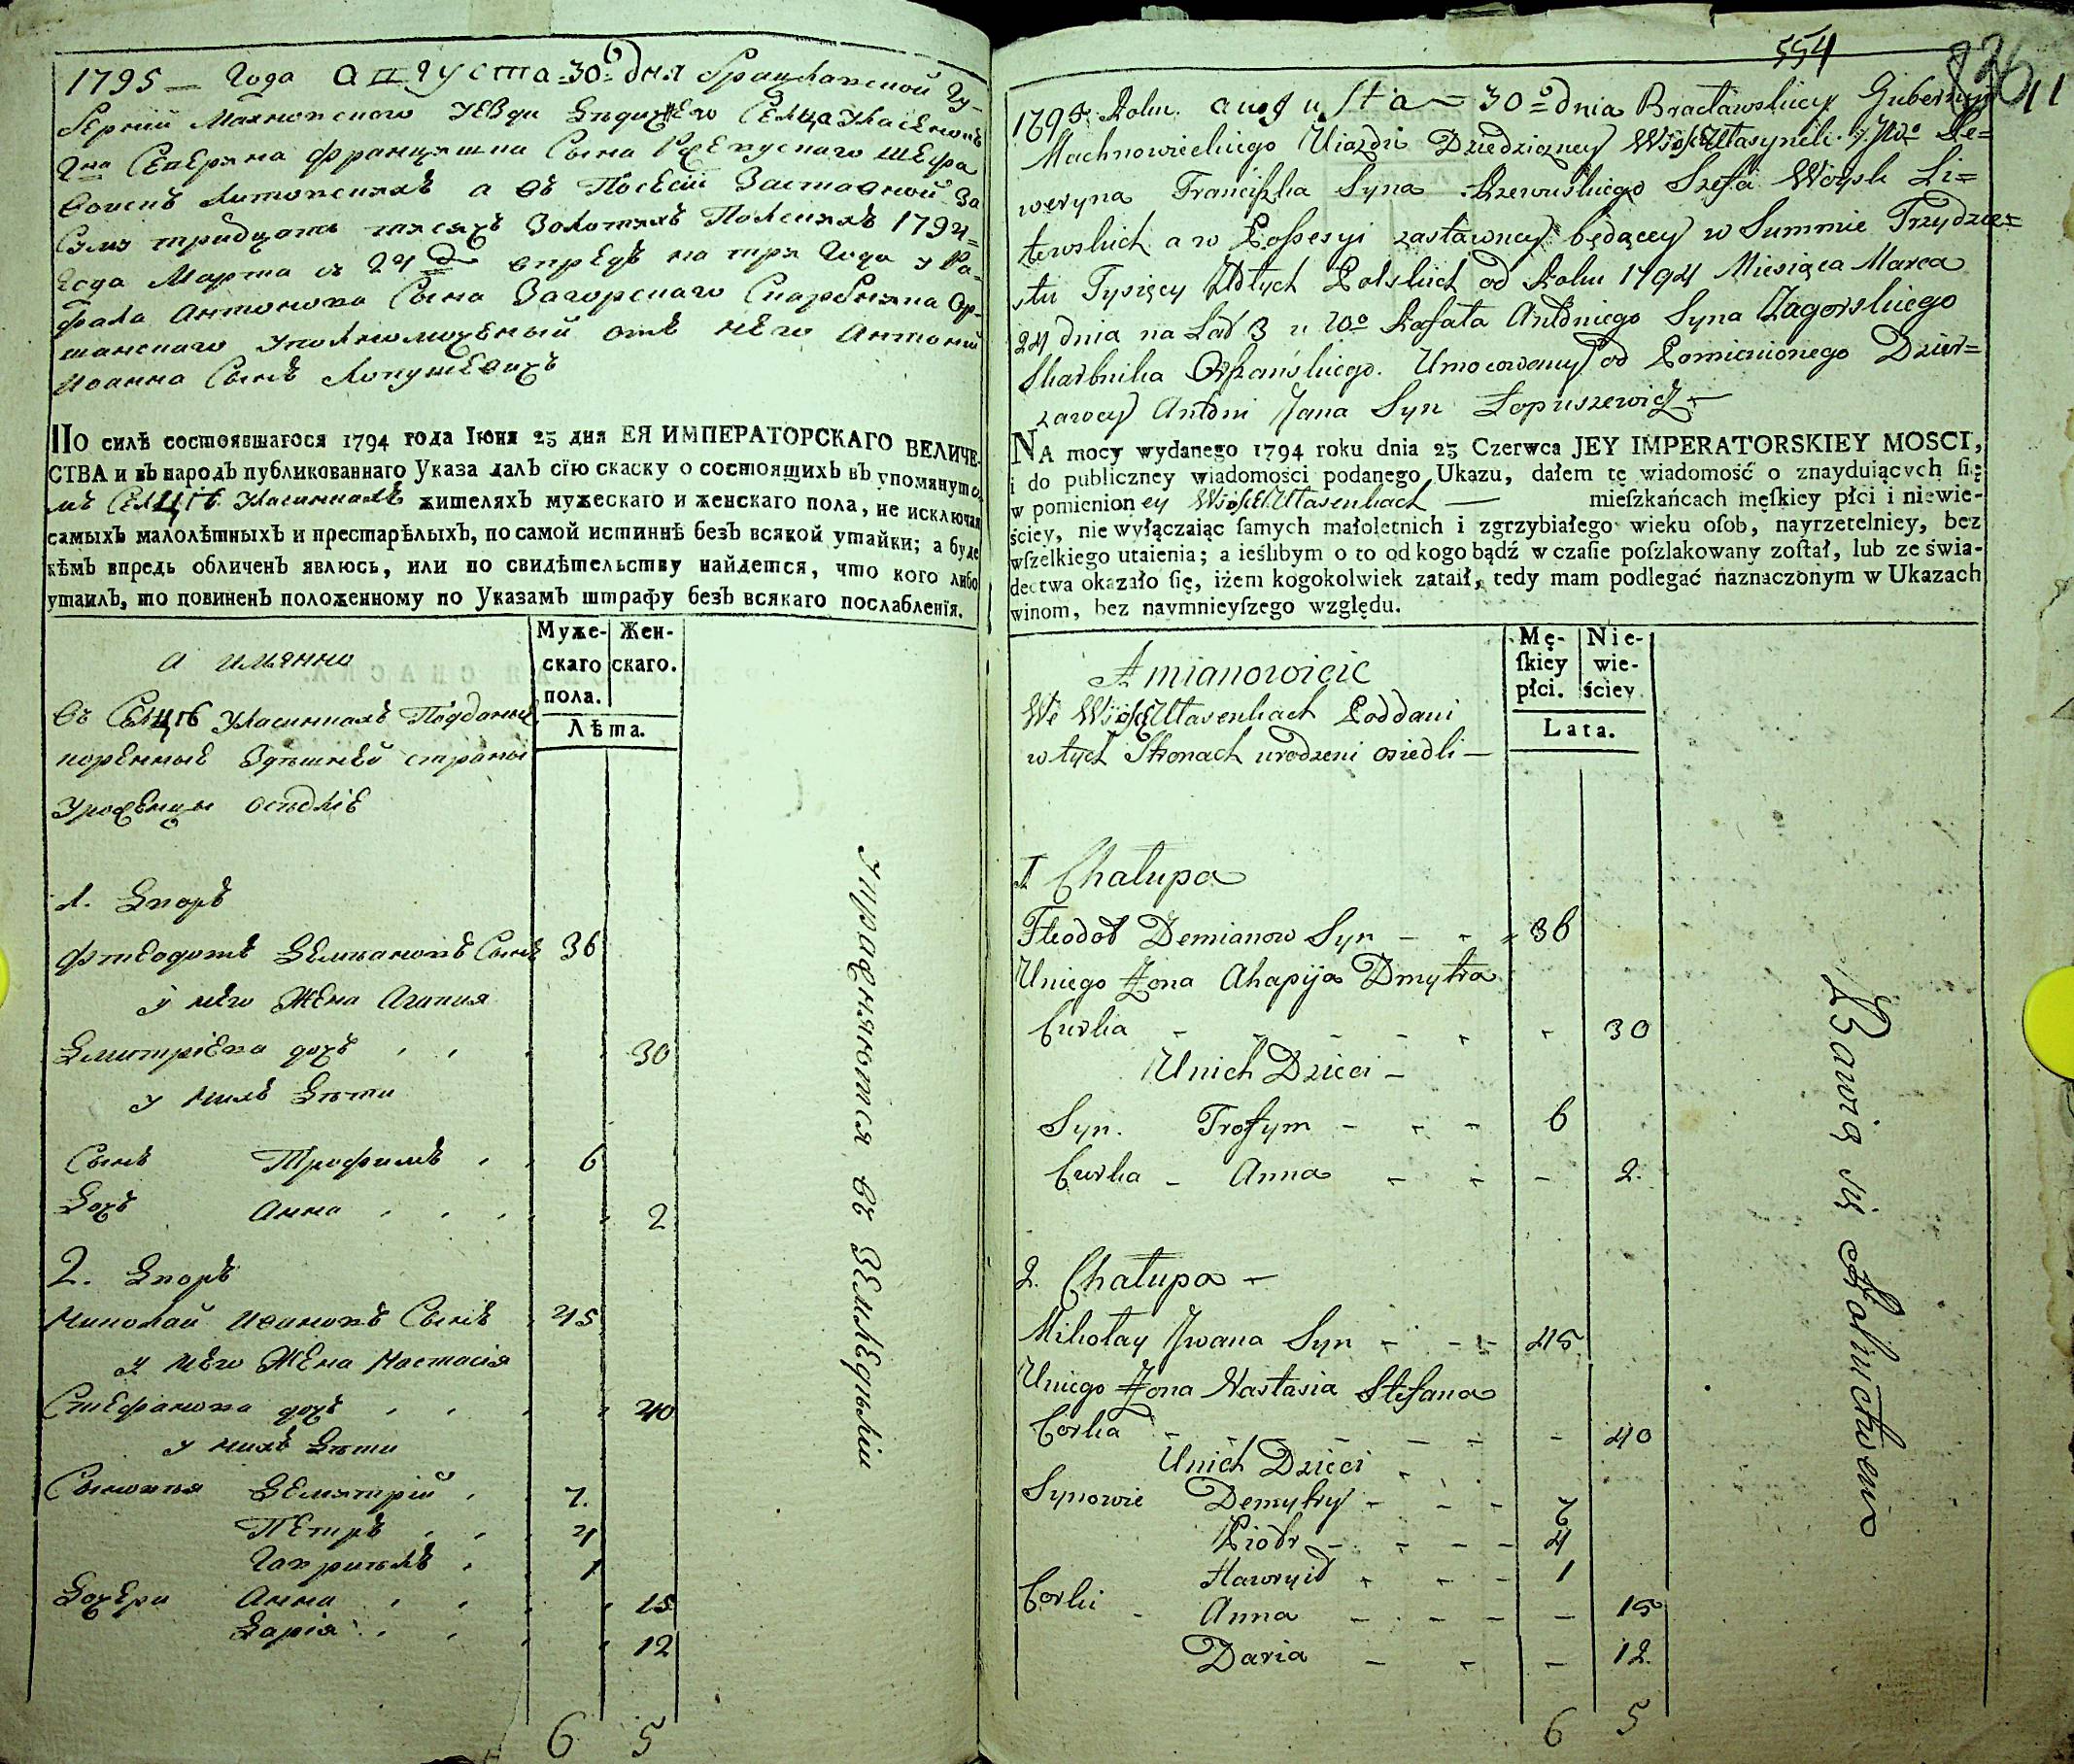 1795 — Года августа 30го дня Брацлавской Гу-
бернии Махновского уезда Сельца Уласинокъ
Северина Францишка Сына Ржевуского Шефа
Войскъ Литовскихъ а въ Посесии Заставной за
Суму тридцать тысячъ Золотыхъ Польскихъ 1794=
Года Марта съ 24 впредъ на три Года у Ра-
фала Антонова Сына Загорскаго Скарбника Ор-
шанского Уполномоченный отъ него Антоній
Иоанна Сынъ Лопушевичъ
По силѣ состоявшагося 1794 года Іюня 23 дня ЕЯ ИМПЕРАТОРСКАГО ВЕЛИЧЕ-
СТВА и въ народъ публикованнаго Указа далъ сїю скаску о состоящихъ въ упомянуто-
мъ Сельцѣ Уласинкахъ жителяхъ мужескаго и женскаго пола, не исключая
самыхъ малолѣтныхъ и престарѣлыхъ, по самой истиннѣ безъ всякой утайки; а буде
кѣмъ впредь обличенъ явлюсь, или по свидѣтельству найдется, что кого либо
утаилъ, то повиненъ положенному по Указамъ штрафу безъ всякаго послабленїя.
Муже-
скаго
пола.
Жен-
скаго.
Лѣта.
а имянно
въ Сельцѣ Уласинкахъ Подданые
коренные Здешней страны
Уроженцы оседлые
1. Дворъ
Фтеодотъ Демьяновъ Сынъ 36
у него Жена Агапия
Дмитріева дочь 30
у нихъ Дети
Сынъ Трофимъ 6
Дочь Анна 2
2. Дворъ
Николай Ивановъ Сынъ 45
у него Жена Настасія
Стефанова дочь 40
у нихъ Дети
Сыновья Демятрій 7.
Петръ 4
Гавриилъ 1
Дочери Анна 15
Дарія 12
6 5
Упражняются въ Земледелии
554
836
11
1795 Roku augusta 30o dnia Bracławskiey Gubernij
Machnowieckiego Uiazdu Dziedziczney Wioski Ułasynek Jmo Se=
weryna Franciszka Syna Rzewuskiego Szefa Woysk Li=
tewskich a w Possesyi zastawney będącey w Summie Trzydzie=
stu Tysięcy Złotych Polskich od Roku 1794 Miesiąca Marca
24 dnia na Lat 3 u Wo Rafała Antoniego Syna Zagorskiego
Skarbnika Orszańskiego. Umocowany od Pomienionego Dzier=
zawcy Antoni Jana Syn Łopuszewicz —
NA mocy wydanego 1794 roku dnia 23 Czerwca JEY IMPERATORSKIEY MOSCI,
i do publiczney wiadomości podanego Ukazu, dałem tę wiadomość o znayduiących ſię
w pomienioney Wiosce Ułasenkach — mieſzkańcach męſkiey płci i niewie-
ściey, nie wyłączaiąc ſamych małoletnich i zgrzybiałego wieku oſob, nayrzetelniey, bez
wſzelkiego utaienia; a ieślibym o to od kogo bądź w czaſie poſzlakowany zoſtał, lub ze świa-
dectwa okazało się, iżem kogokolwiek zataił, tedy mam podlegać naznaczonym w Ukazach
winom, bez naymnieyſzego względu.
Mę-
ſkiey
płci.
Nie-
wie-
ściey.
Lata.
A mianowicie
We Wiosce Ułasenkach Poddani
w tych Stronach urodzeni osiedli —
1 Chałupa
Fteodot Demianow Syn 36
U niego Zona Ahapija Dmytra
Curka 30
U nich Dzieci —
Syn. Trofym 6
Curka — Anna 2.
2. Chałupa —
Mikołay Jwana Syn 45
U niego Zona Nastasia Stefana
Corka 40
U nich Dzieci
Synowie Demytry 7
Piotr 4
Hawryił 1
Corki Anna 15
Daria 12.
6 5
Bawią się Rolnictwem